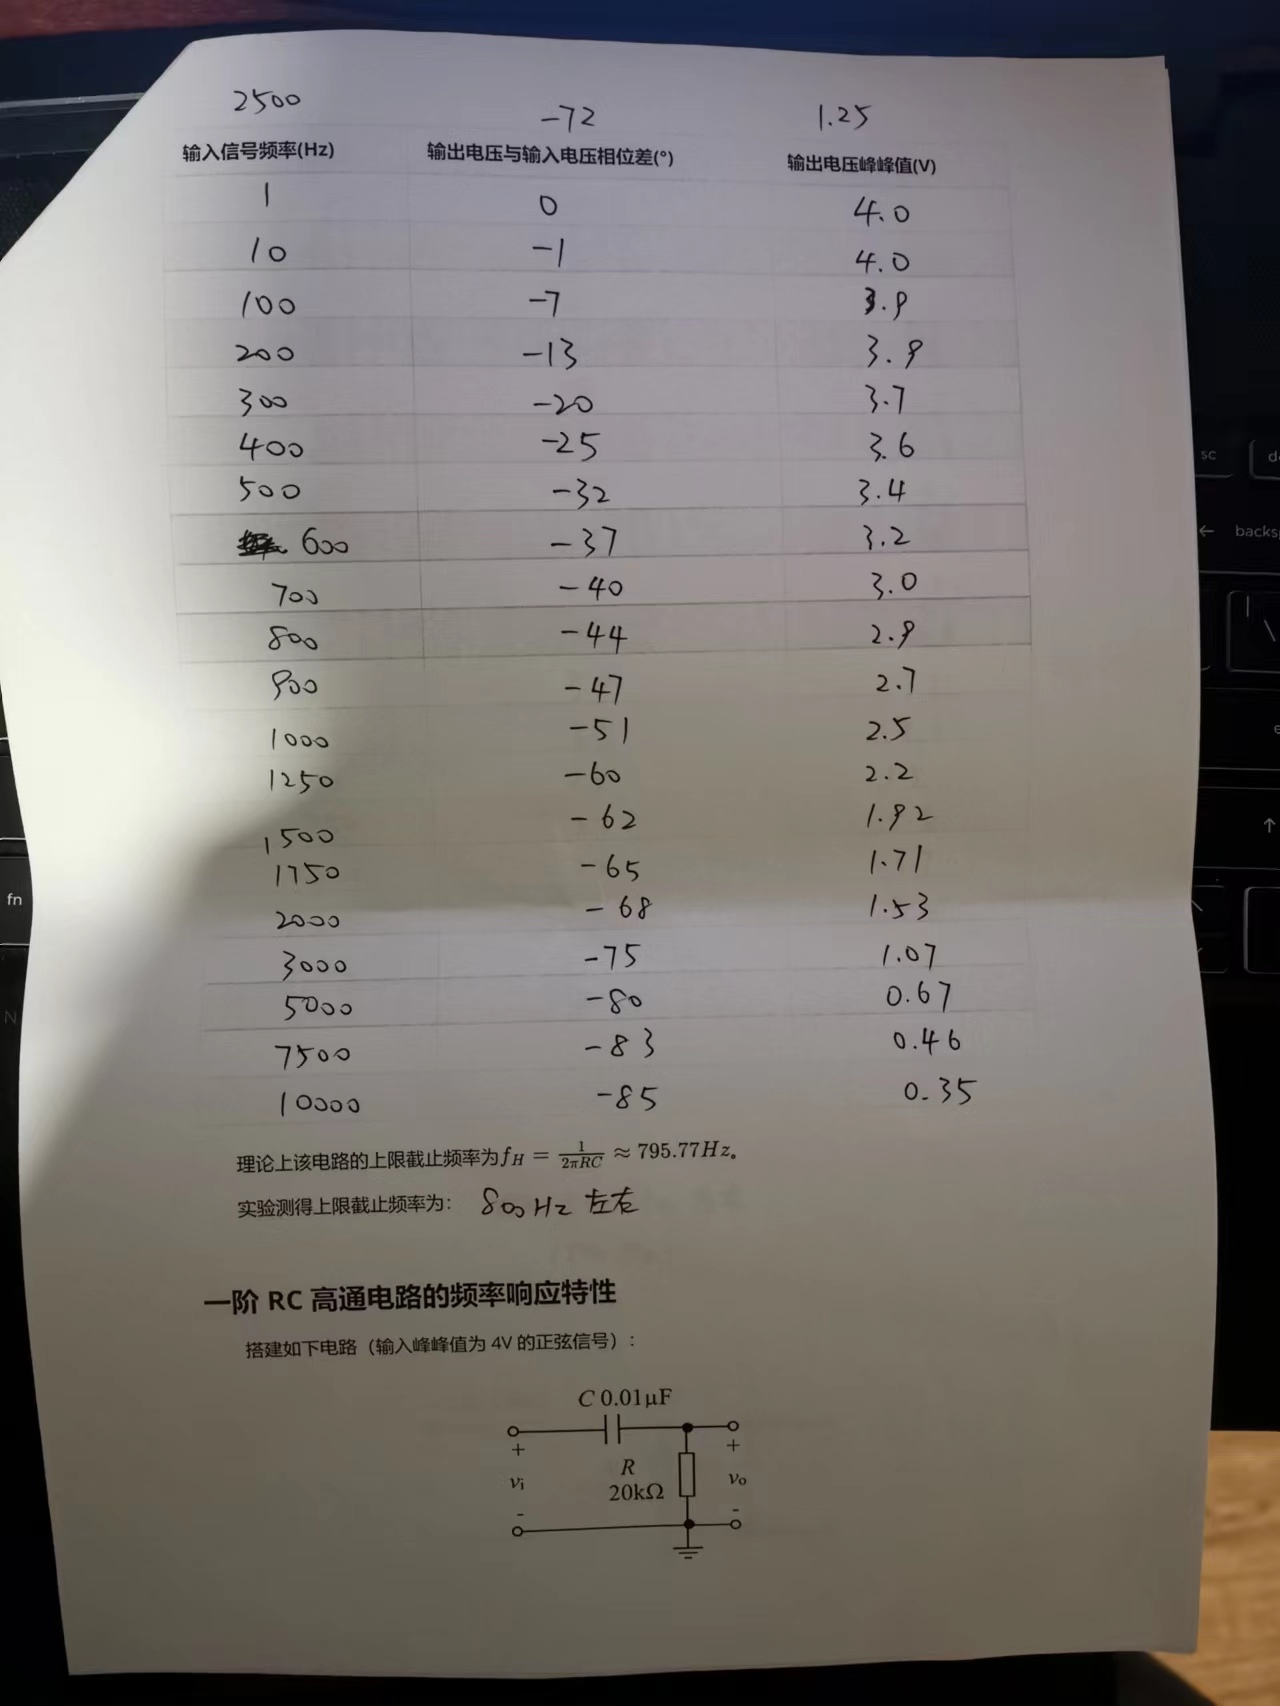 2500 -72 1.25
输入信号频率(Hz) 输出电压与输入电压相位差(°) 输出电压峰峰值(V)
1 0 4.0
10 -1 4.0
100 -7 3.9
200 -13 3.9
300 -20 3.7
400 -25 3.6
500 -32 3.4
600 -37 3.2
700 -40 3.0
800 -44 2.9
900 -47 2.7
1000 -51 2.5
1250 -60 2.2
1500 -62 1.92
1750 -65 1.71
2000 -68 1.53
3000 -75 1.07
5000 -80 0.67
7500 -83 0.46
10000 -85 0.35
理论上该电路的上限截止频率为fH = 1/2πRC ≈ 795.77Hz。
实验测得上限截止频率为: 800Hz 左右
一阶 RC 高通电路的频率响应特性
搭建如下电路（输入峰峰值为 4V 的正弦信号）:
C 0.01μF
+ +
R
vi 20kΩ vo
- -
sc
backs
fn
N